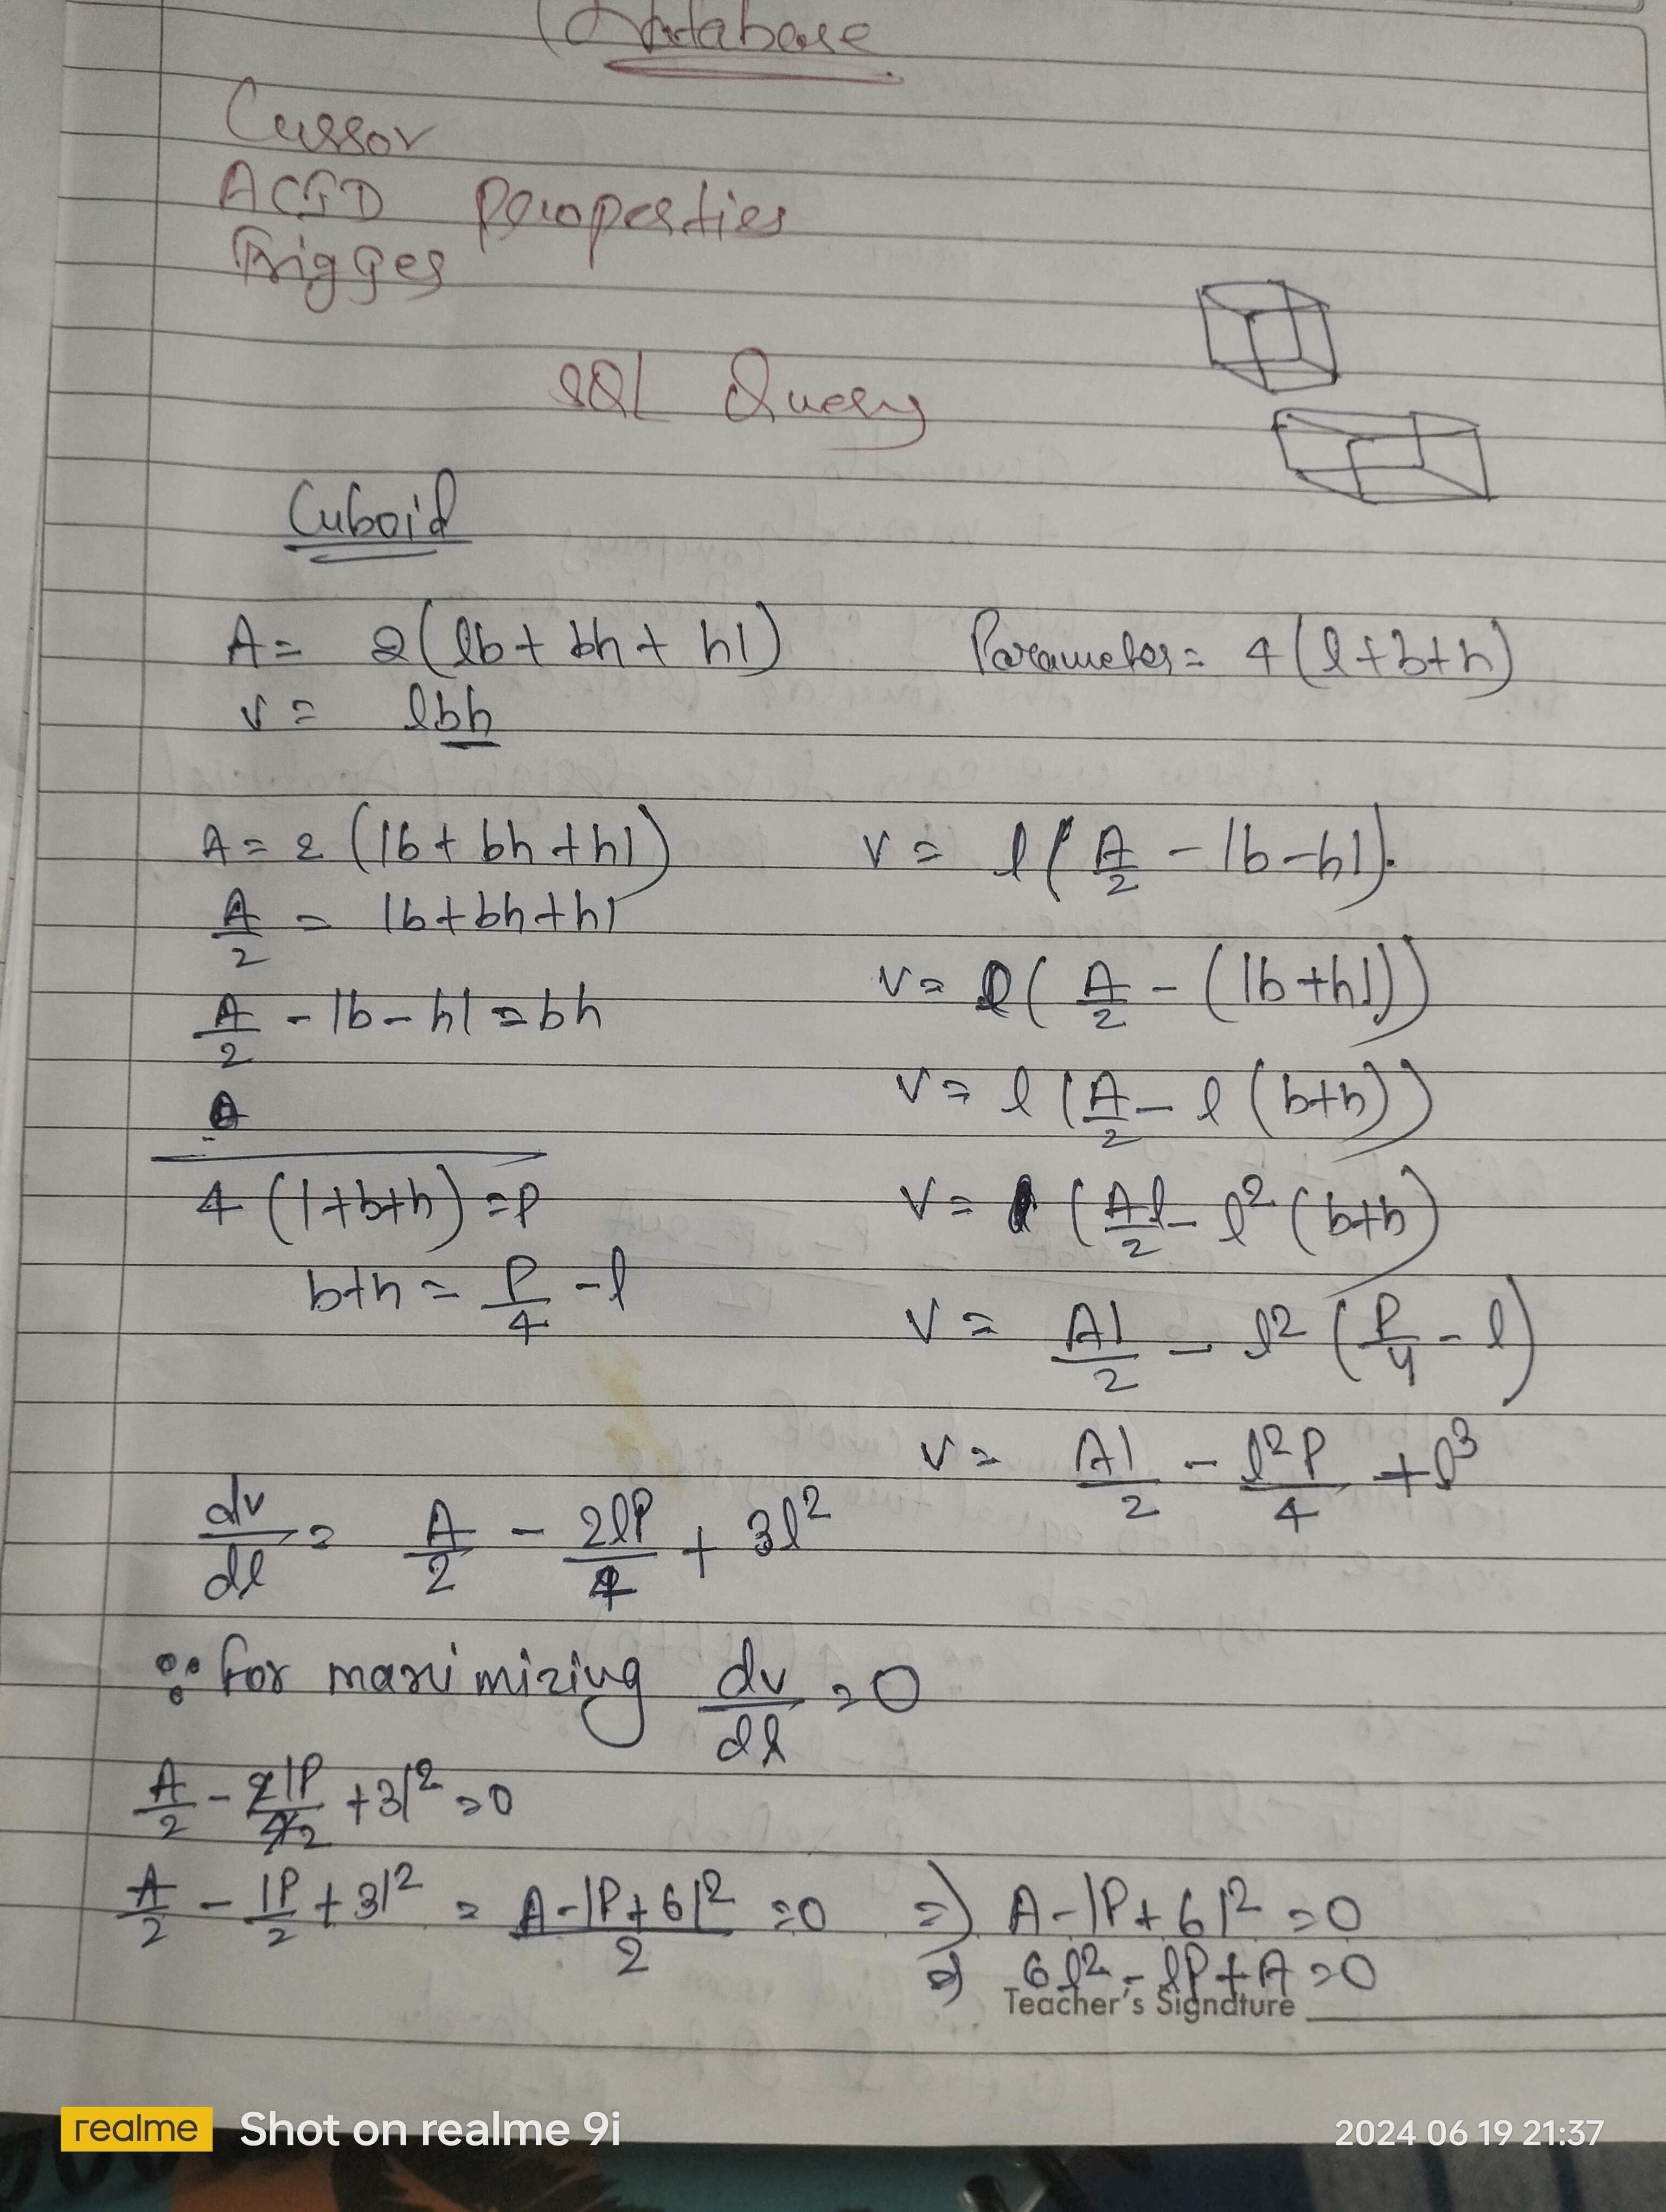 Database
Cursor
ACID Properties
Trigger
SQL Query
Cuboid
A = 2(lb + bh + hl)    Parameter = 4(l+b+h)
V = lbh
A = 2(lb + bh + hl)    V = l(A/2 - lb - hl).
A/2 = lb + bh + hl
V = l(A/2 - (lb + hl))
A/2 - lb - hl = bh
V = l(A/2 - l(b+h))
4(l+b+h) = P    V = (Al/2 - l²(b+h)
b+h = P/4 - l
V = Al/2 - l²(P/4 - l)
V = Al/2 - l²P/4 + l³
dv/dl = A/2 - 2lP/4 + 3l²
∵ for maximizing dv/dl = 0
A/2 - 2lP/42 + 3l² = 0
A/2 - lP/2 + 3l² = A - lP + 6l²/2 = 0 => A - lP + 6l² = 0
=> 6l² - lP + A = 0
Teacher's Signature
realme Shot on realme 9i 2024 06 19 21:37